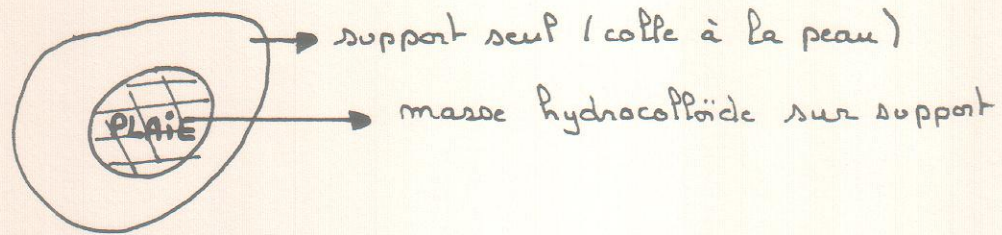 support seul (colle à la peau)
PLAiE
masse hydrocolloïde sur support